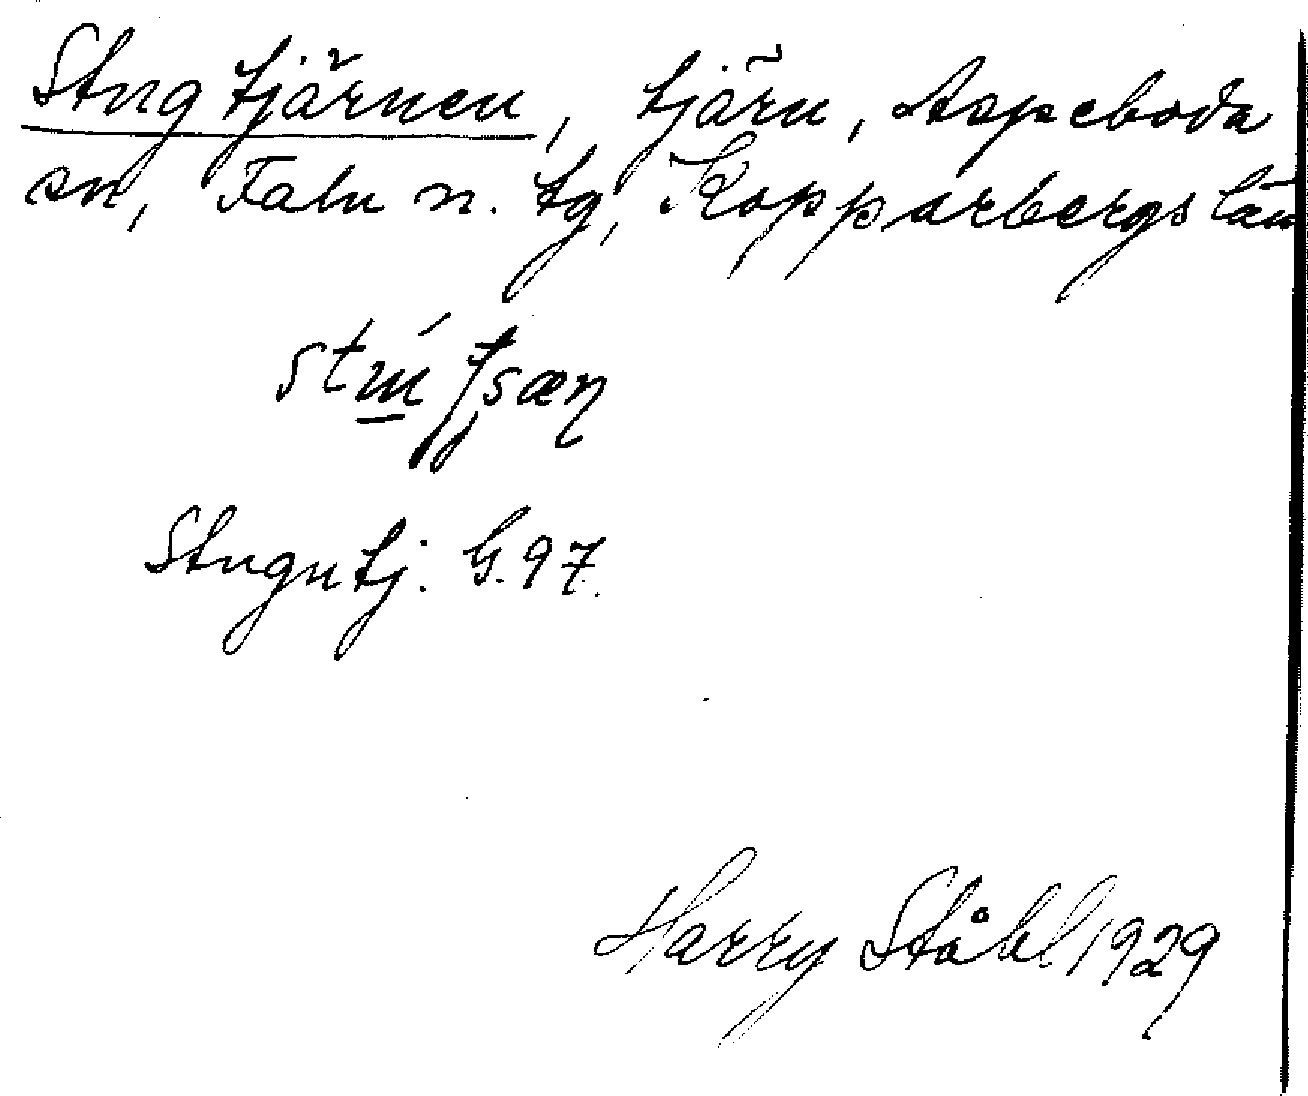 Stugtjärnen, tjärn, Aspeboda
sn, Falu n. tg, Kopparbergs län
Stugutj. G. 97.
Harry Ståhl 1929